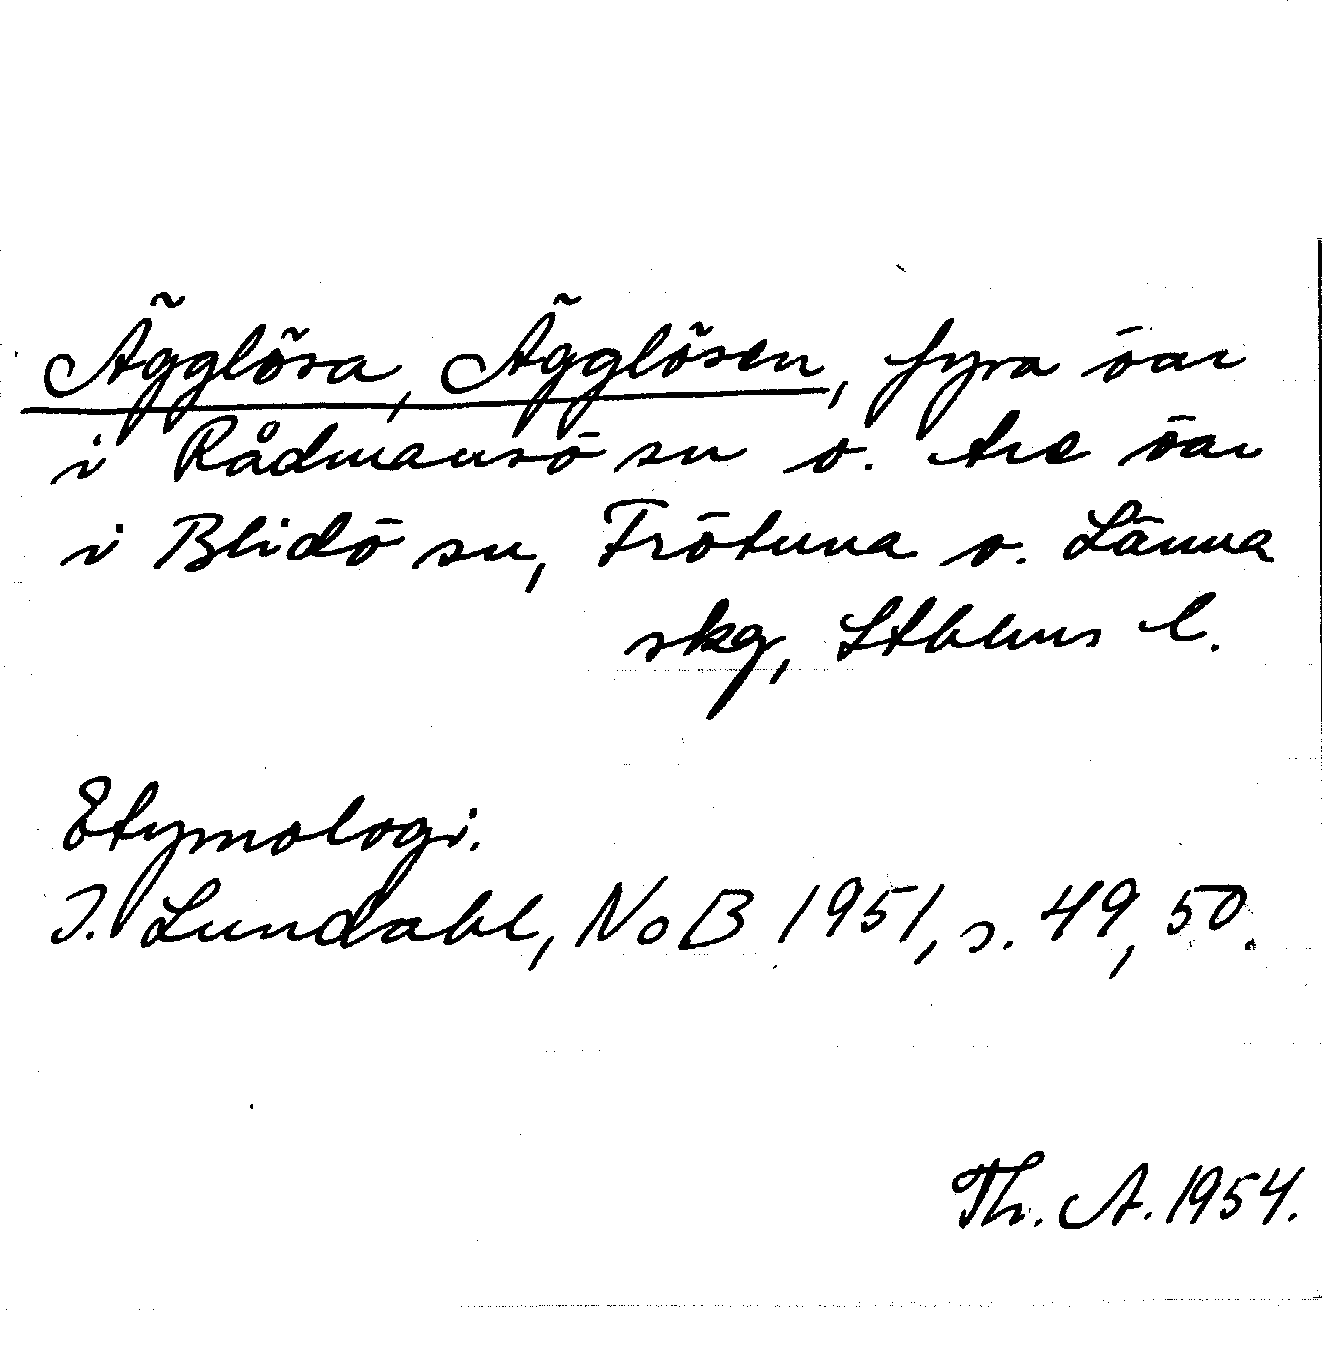 Ägglösa, Ägglösen, fyra öar
i Rådmansö sn o. tre öar
i Blidö sn, Frötuna o. Länna
skg, Sthlms l.
Etymologi.
I. Lundahl, NoB 1951, s. 49, 50.
Th. A. 1954.